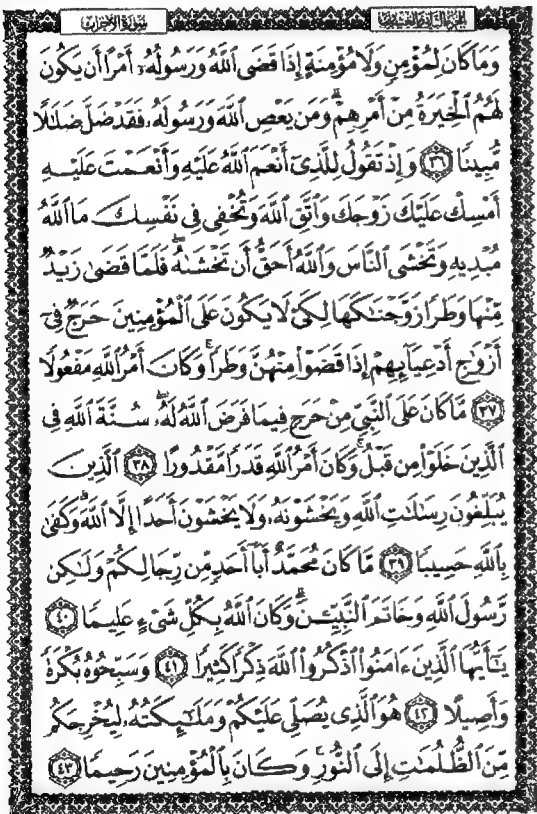 سُورَةُ الأَحْزَابِ
الجزء الثاني والعشرون
وَمَا كَانَ لِمُؤْمِنٍ وَلَا مُؤْمِنَةٍ إِذَا قَضَى ٱللَّهُ وَرَسُولُهُۥٓ أَمْرًا أَن يَكُونَ
لَهُمُ ٱلْخِيَرَةُ مِنْ أَمْرِهِمْ ۗ وَمَن يَعْصِ ٱللَّهَ وَرَسُولَهُۥ فَقَدْ ضَلَّ ضَلَٰلًا
مُّبِينًا ٣٦ وَإِذْ تَقُولُ لِلَّذِىٓ أَنْعَمَ ٱللَّهُ عَلَيْهِ وَأَنْعَمْتَ عَلَيْهِ
أَمْسِكْ عَلَيْكَ زَوْجَكَ وَٱتَّقِ ٱللَّهَ وَتُخْفِى فِى نَفْسِكَ مَا ٱللَّهُ
مُبْدِيهِ وَتَخْشَى ٱلنَّاسَ وَٱللَّهُ أَحَقُّ أَن تَخْشَىٰهُ ۖ فَلَمَّا قَضَىٰ زَيْدٌ
مِّنْهَا وَطَرًا زَوَّجْنَٰكَهَا لِكَىْ لَا يَكُونَ عَلَى ٱلْمُؤْمِنِينَ حَرَجٌ فِىٓ
أَزْوَٰجِ أَدْعِيَآئِهِمْ إِذَا قَضَوْا۟ مِنْهُنَّ وَطَرًا ۚ وَكَانَ أَمْرُ ٱللَّهِ مَفْعُولًا
٣٧ مَّا كَانَ عَلَى ٱلنَّبِىِّ مِنْ حَرَجٍ فِيمَا فَرَضَ ٱللَّهُ لَهُۥ ۖ سُنَّةَ ٱللَّهِ فِى
ٱلَّذِينَ خَلَوْا۟ مِن قَبْلُ ۚ وَكَانَ أَمْرُ ٱللَّهِ قَدَرًا مَّقْدُورًا ٣٨ ٱلَّذِينَ
يُبَلِّغُونَ رِسَٰلَٰتِ ٱللَّهِ وَيَخْشَوْنَهُۥ وَلَا يَخْشَوْنَ أَحَدًا إِلَّا ٱللَّهَ ۗ وَكَفَىٰ
بِٱللَّهِ حَسِيبًا ٣٩ مَّا كَانَ مُحَمَّدٌ أَبَآ أَحَدٍ مِّن رِّجَالِكُمْ وَلَٰكِن
رَّسُولَ ٱللَّهِ وَخَاتَمَ ٱلنَّبِيِّـۧنَ ۗ وَكَانَ ٱللَّهُ بِكُلِّ شَىْءٍ عَلِيمًا ٤٠
يَٰٓأَيُّهَا ٱلَّذِينَ ءَامَنُوا۟ ٱذْكُرُوا۟ ٱللَّهَ ذِكْرًا كَثِيرًا ٤١ وَسَبِّحُوهُ بُكْرَةً
وَأَصِيلًا ٤٢ هُوَ ٱلَّذِى يُصَلِّى عَلَيْكُمْ وَمَلَٰٓئِكَتُهُۥ لِيُخْرِجَكُم
مِّنَ ٱلظُّلُمَٰتِ إِلَى ٱلنُّورِ ۚ وَكَانَ بِٱلْمُؤْمِنِينَ رَحِيمًا ٤٣